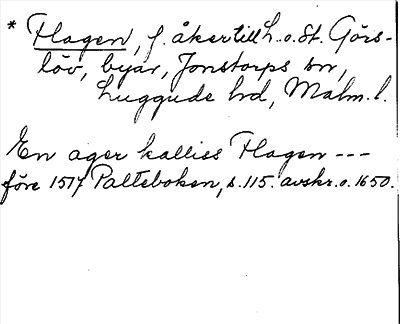 * Flagen, f. åker till L. o. St. Görs-
löv, byar, Jonstorps sn,
Luggude hd, Malm. l.
En ager kalliss Flagen ---
före 1517 Palteboken, s. 115. avskr. o. 1650.